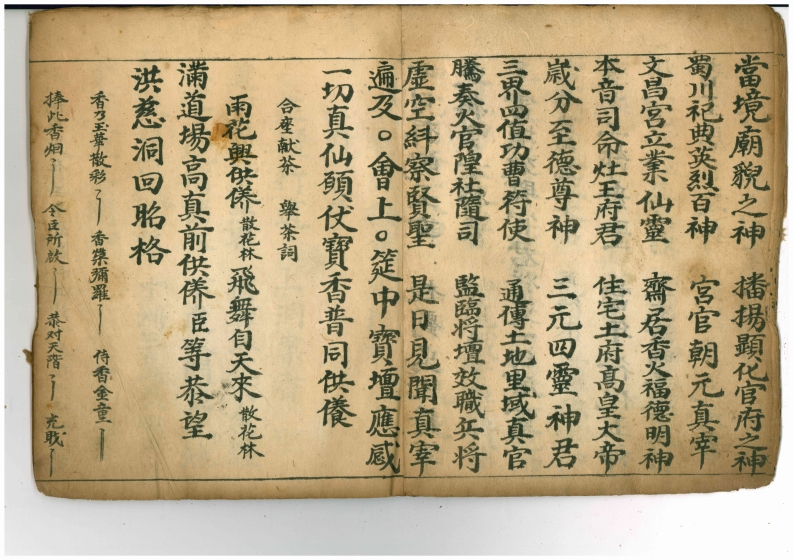 當境廟貌之神　播揚顯化官府之神
蜀川祀典英烈百神　宮官朝元真宰
文昌宮立業仙靈　齋居香火福德明神
本音司命灶王府君　住宅土府高皇大帝
歲分至德尊神　三元四靈神君
三界四值功曹符使　通傳土地里域真官
騰奏火官隍社隨司　監臨將壇效職兵将
虛空糾察賢聖　是日見聞真宰
遍及。會上。筵中寶壇應感
一切真仙願伏寶香普同供養
合座献茶　舉茶詞
雨花興供養 散花林 飛舞自天來 散花林
滿道場高真前供養臣等恭望
洪慈洞回昭格
香乃玉華散彩　香篆彌羅　侍香金童
捧此香烟　令臣所啟　恭对天階